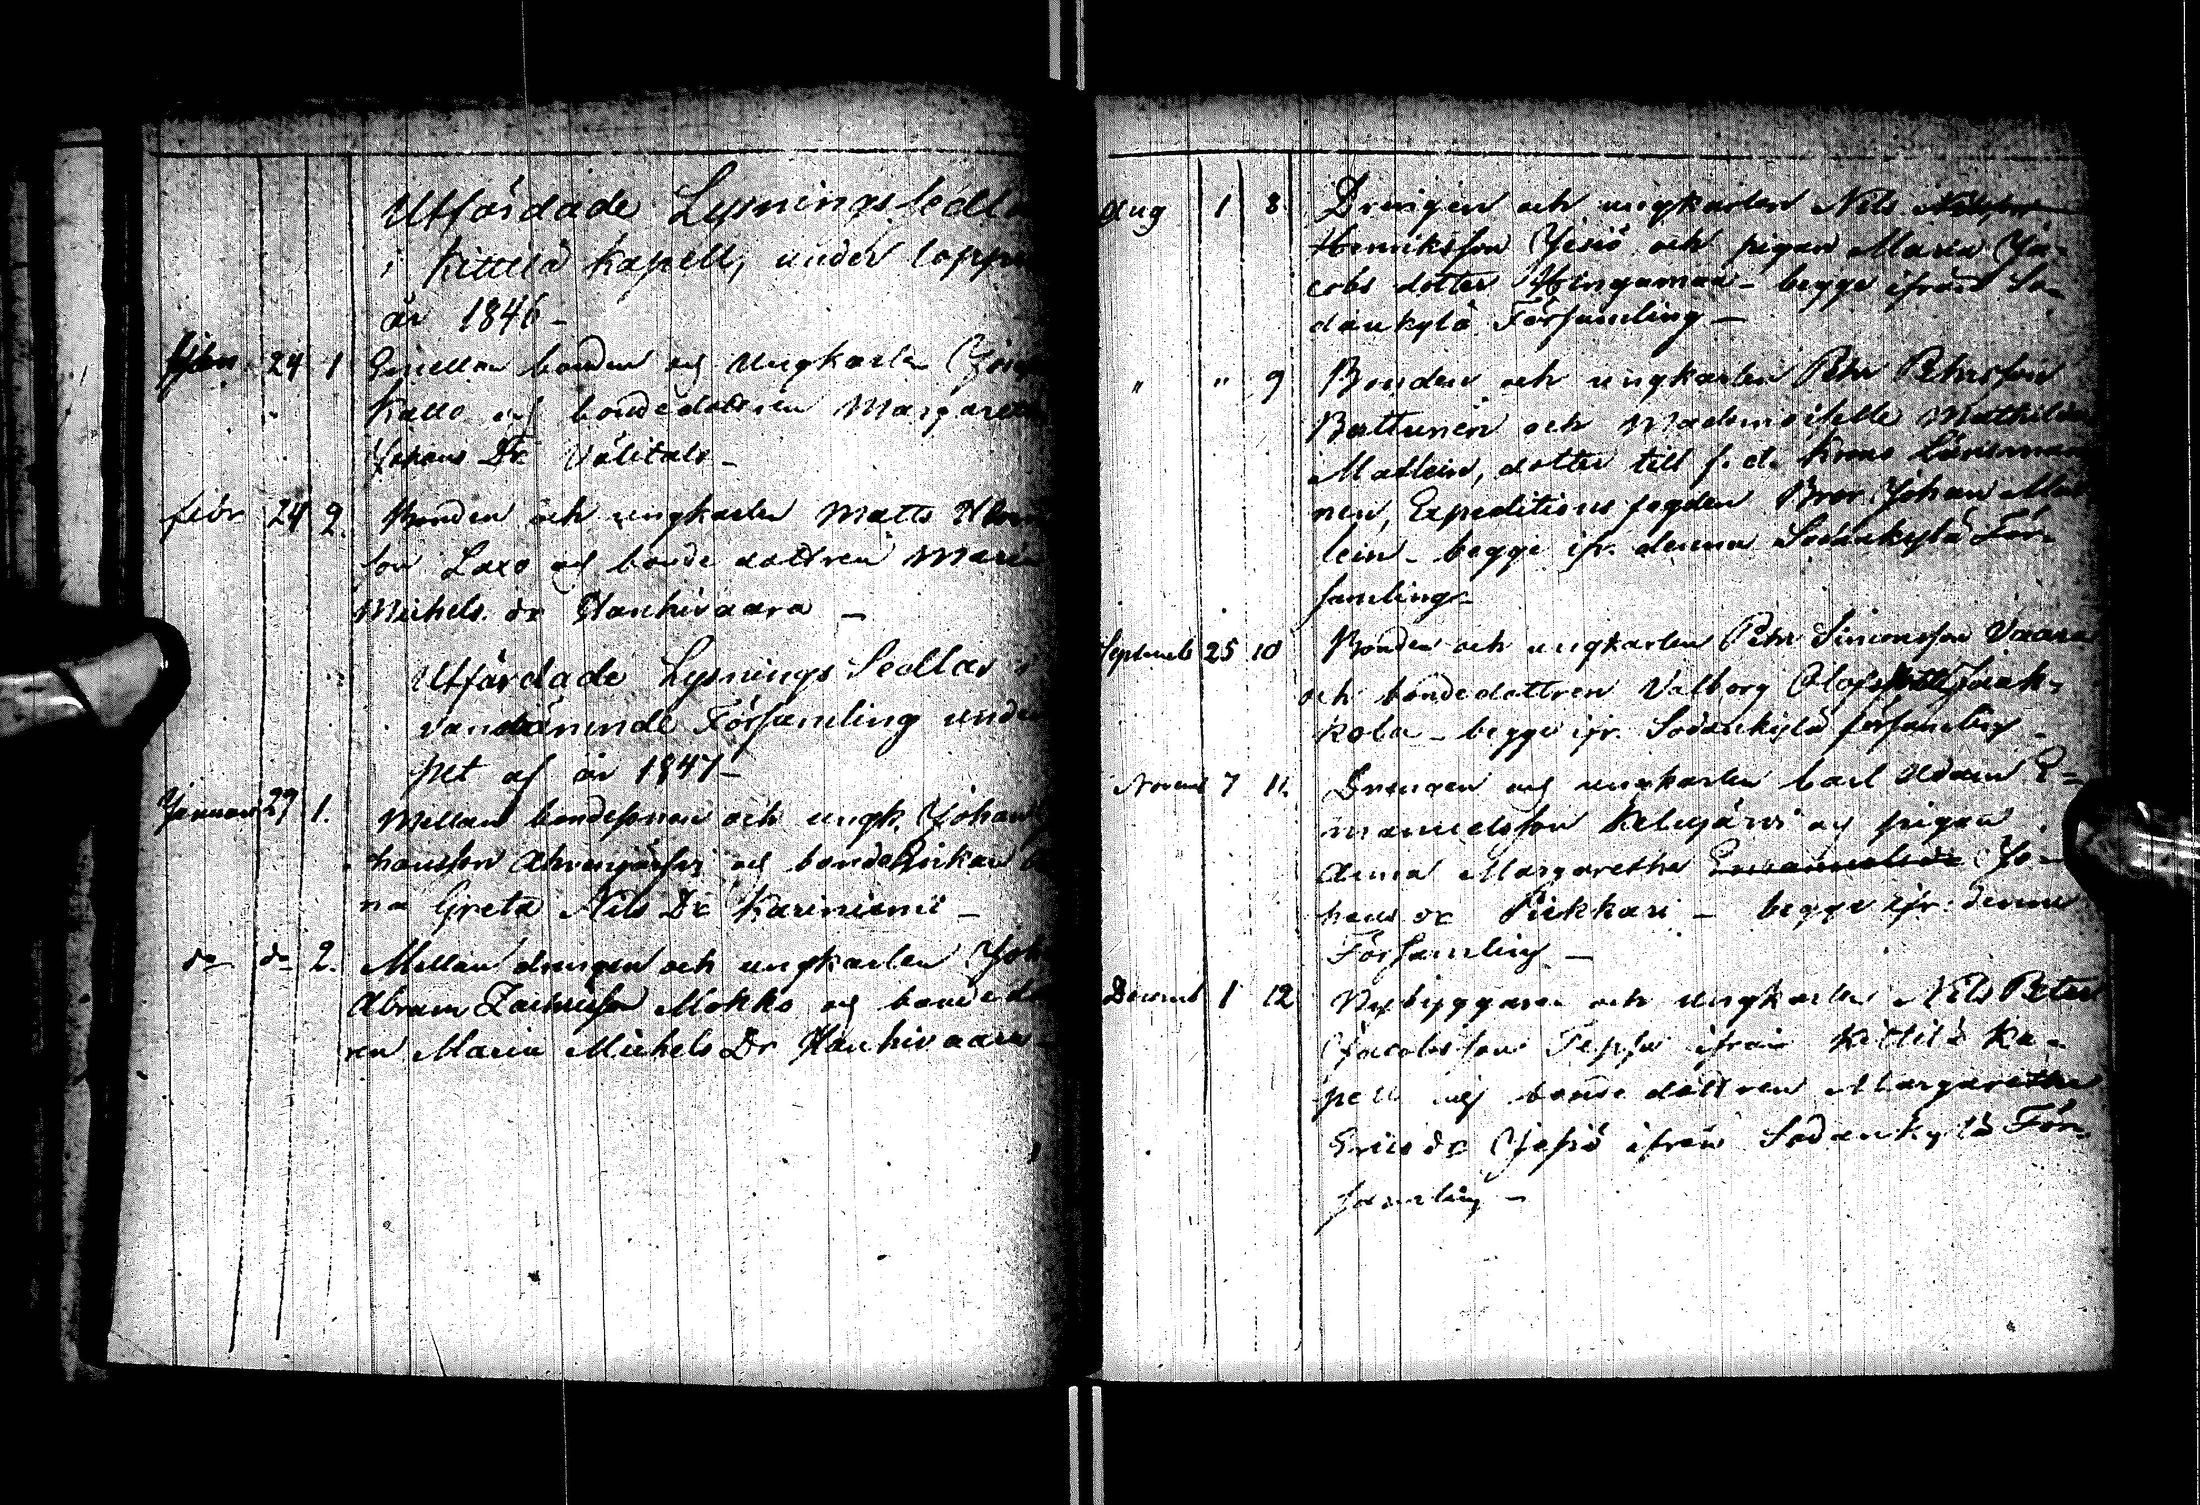 Utfärdade Lysnings Sedla
i Kittilä Kapell, under loppe
år 1846 -
Jan 24 1 Emellan bonden och Ungkarlen
Kallo och bondedottren Margareta
Johans Dr Välitalo -
febr 24 2. Bonden och ungkarlen Matts
son Laxo och bonde dottren Maria
Michels dr Hanhivaara -
Utfärdade Lysnings Sedlar i
vanstående Församling unde
pet af år 1847 -
Januari 29 1. Mellan bondesonen och ungk. Johan
hansson och bonde
na Greta Nils Dr Kariniemi -
do do 2. Mellan drengen och ungkarlen Joh
Abram Mokko och bonde do
ren Maria Michels Dr Hanhivaara -
Aug 1 8. Drengen och ungkarlen Nils
Henriksson Jesiö och pigan Maria Ja-
cobs dotter - begge ifrån So-
dankylä Församling -
" " 9 Bonden och ungkarlen Pehr Pehrsson
Battunen och Mademoiselle Mathilda
Matlein, dotter till f. d. Krono Länsman
nen, Expeditions fogden Bror Johan Mat
lein - begge ifr. denna Sodankylä För-
samling -
Septemb 25 10 Bonden och ungkarlen Pehr Simonsson Vaara
och bondedottren Valborg Olofs
kola - begge ifr. Sodankylä församling -
Novemb 7 11. Drengen och ungkarlen Carl Adam E-
manuelsson Kelujärvi och pigan
Anna Margaretha Emanuels dr Jo-
hans dr Pirkkari - begge ifr. denna
Församling -
Decemb 1 12 Nybyggaren och ungkarlen Nils Peter
Jacobsson Teppo ifrån Kittilä Ka-
pell och bonde dottren Margaretha
Erics dr Jesiö ifrån Sodankylä För-
samling -